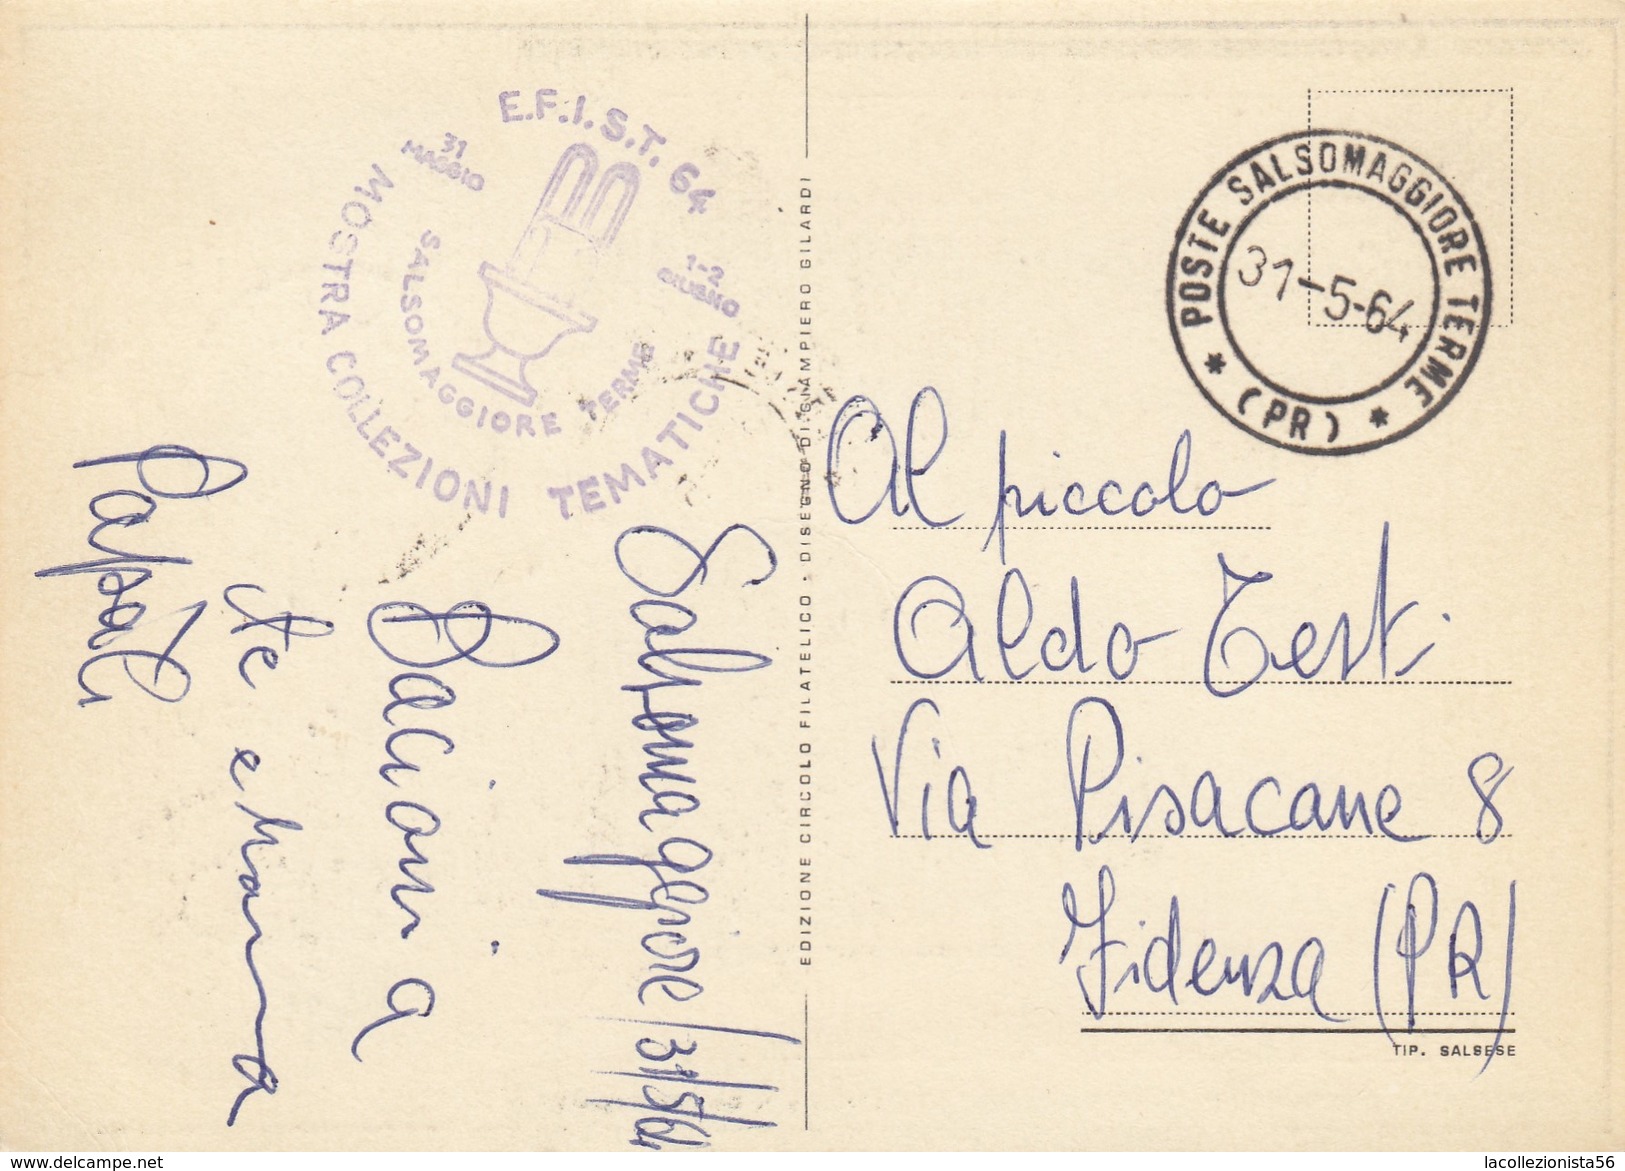 E.F.I.S.T. 64
31
MAGGIO
1-2
GIUGNO
SALSOMAGGIORE TERME
MOSTRA COLLEZIONI TEMATICHE
POSTE SALSOMAGGIORE TERME
31-5-64
* (PR) *
Salsomaggiore/31/5/64
Bacioni a
te e mamma
Papà
EDIZIONE CIRCOLO FILATELICO - DISEGNO DI GIAMPIERO GILARDI
Al piccolo
Aldo Testi
Via Pisacane 8
Fidenza (PR)
TIP. SALSESE
www.delcampe.net
lacollezionista56